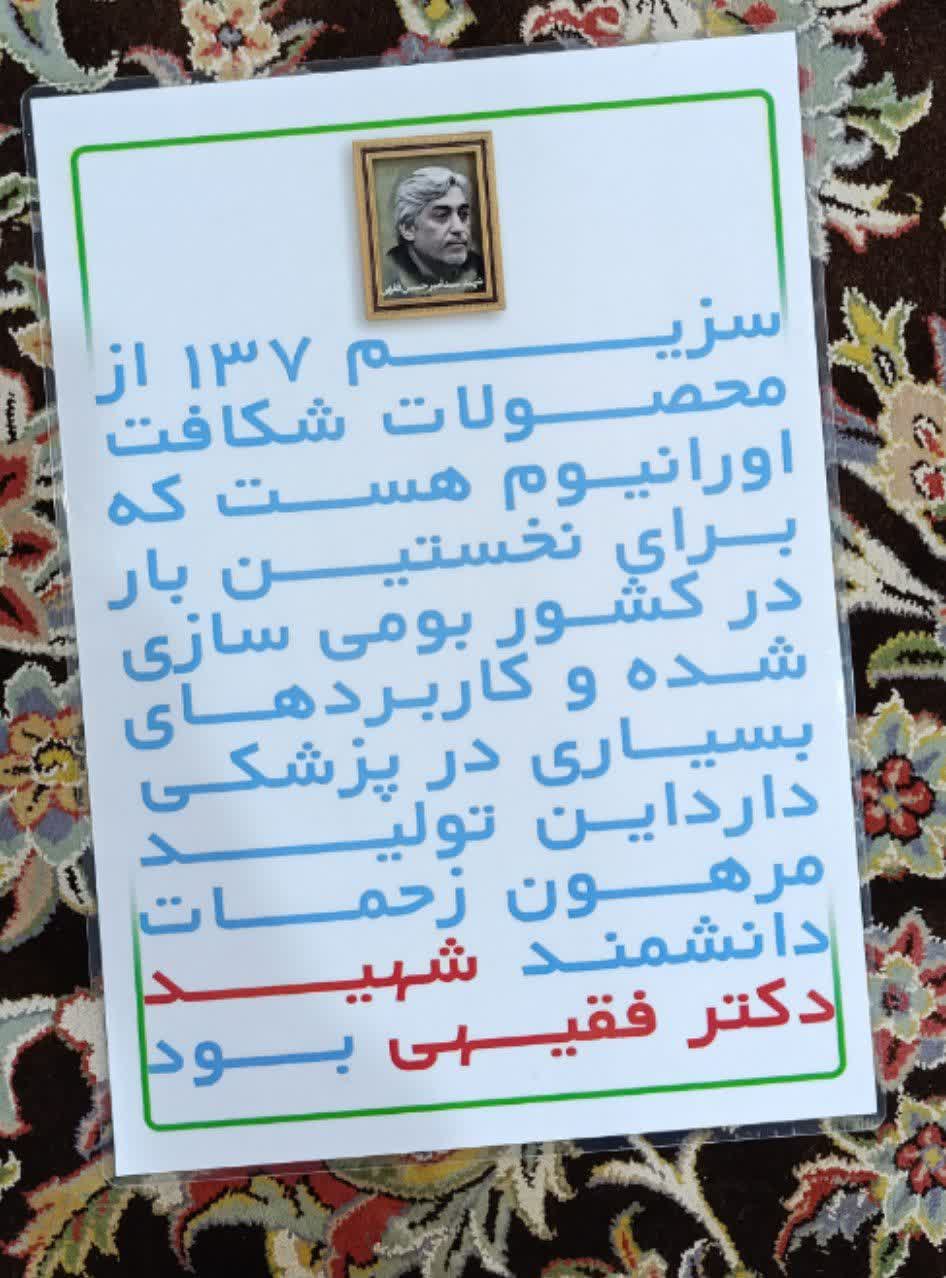 شهید سیدامیرحسین فقهی
سزیم ۱۳۷ از
محصولات شکافت
اورانیوم هست که
برای نخستین بار
در کشور بومی سازی
شده و کاربردهای
بسیاری در پزشکی
دارداین تولید
مرهون زحمات
دانشمند شهید
دکتر فقیهی بود